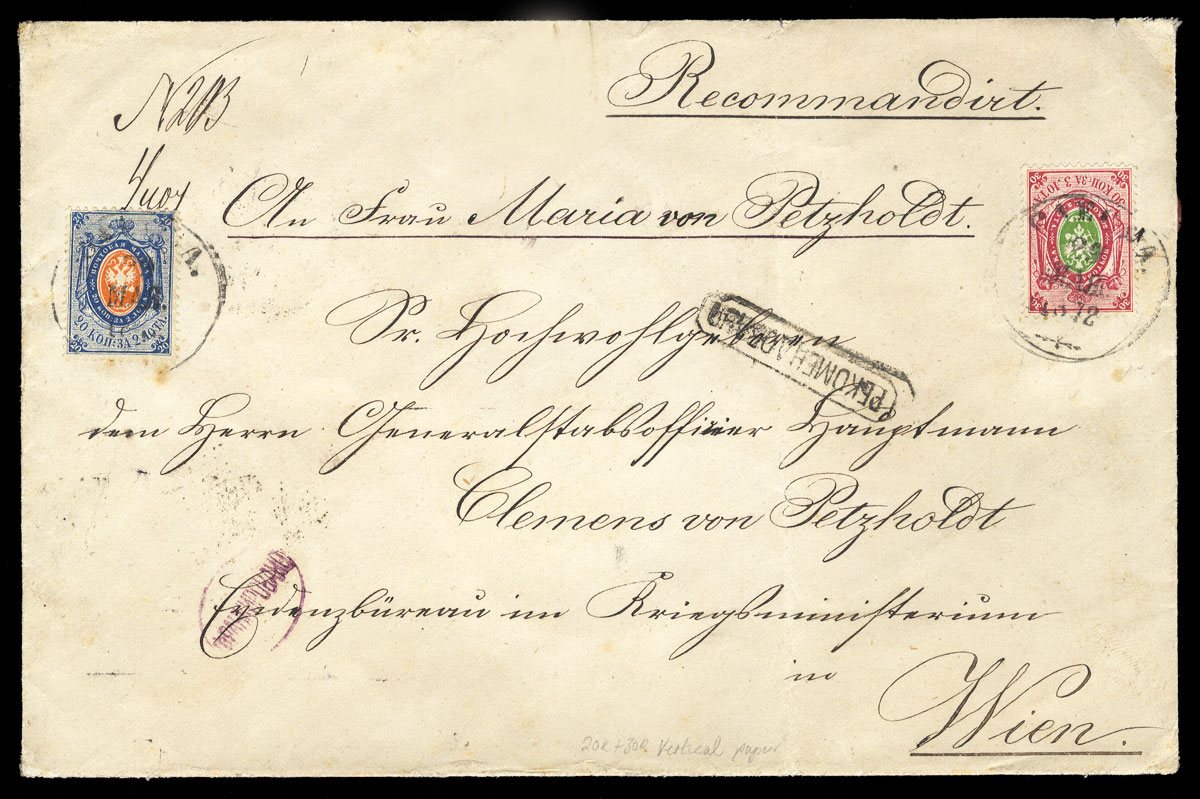 Recommandirt.
N 203
4 uoz
An Frau Maria von Petzholdt.
20 КОП: ЗА 2 ЛОТА.
30 КОП: ЗА 3 ЛОТА
ПОЧТОВАЯ МАРКА
МАЯ.
МАЯ.
1872
Sr. Hochwohlgeboren
РЕКОМЕНДОВАНО
dem Herrn Generalstabsoffizier Hauptmann
Clemens von Petzholdt
Evidenzbüreau im Kriegsministerium
in
Wien.
20k + 30k Vertical paper